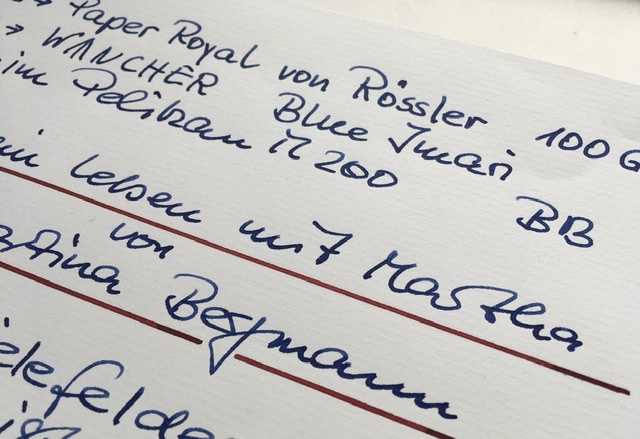 → Paper Royal von Rössler 100 G
→ WANCHER Blue Imari
im Pelikan M 200 BB
leben mit Martha
von
Bergmann